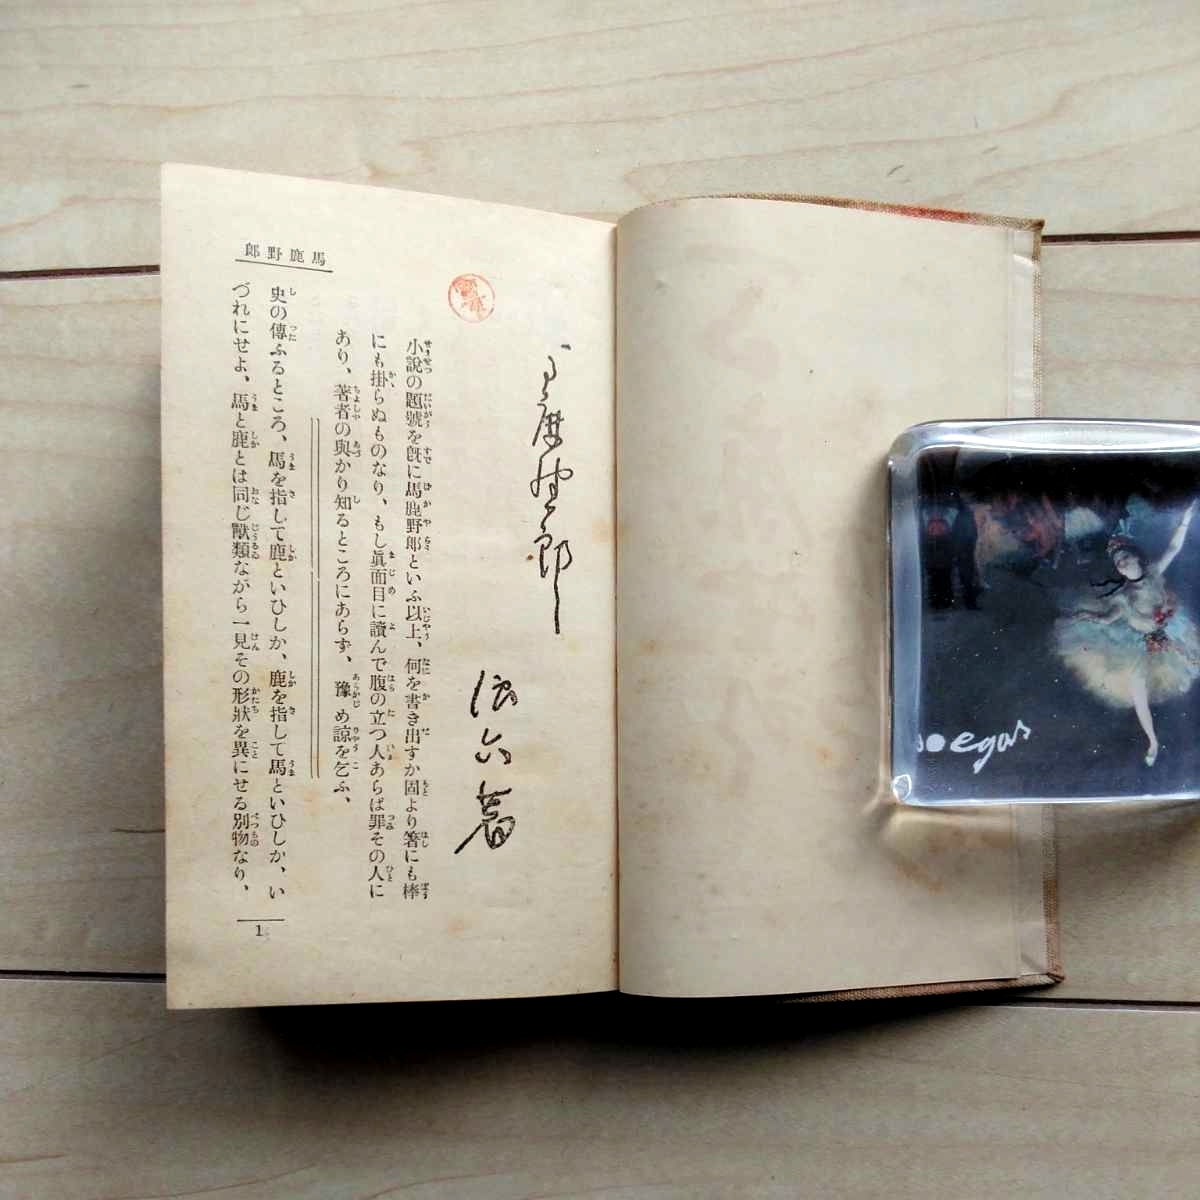 馬鹿野郎
浪六著
小說の題號を旣に馬鹿野郎といふ以上、何を書き出すか固より箸にも棒
にも掛らぬものなり、もし眞面目に讀んで腹の立つ人あらば罪その人に
あり、著者の與かり知るところにあらず、豫め諒を乞ふ、
史の傳ふるところ、馬を指して鹿といひしか、鹿を指して馬といひしか、い
づれにせよ、馬と鹿とは同じ獸類ながら一見その形狀を異にせる別物なり、
馬鹿野郎
1
egas